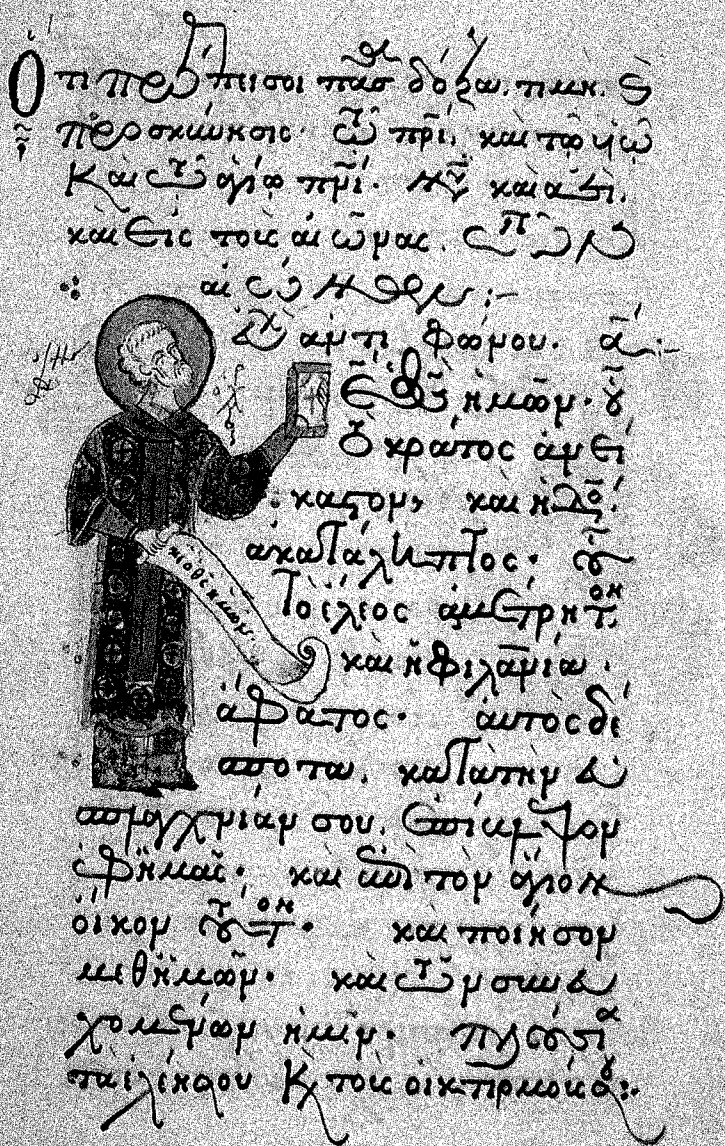 Ὅτι πρέπει σοι πᾶσα δόξα. τιμή. καὶ
προσκύνησις· τῷ πρι̅, καὶ τῷ υἱῷ
καὶ τῷ ἁγίῳ πνι̅· νῦν καὶ ἀεὶ.
καὶ εἰς τοὺς αἰῶνας. τῶν
αἰώνων ἀμήν :-
εὐχ ἀντιφώνου. α̅ :-
κ̅ε̅ ὁ θ̅ς̅ ἡμῶν· οὗ
τὸ κράτος ἀνεί
καστον, καὶ ἡ δόξ.
ἀκατάληπτος· οὗ
τὸ ἔλεος ἀμέτρητον
κ̅ε̅ ὁ θ̅ς̅ ἡμῶν.
καὶ ἡ φιλανία
ἄφατος· αὐτὸς δέ
σποτα. κατὰ τὴν εὐ
σπλαγχνίαν σου. ἐπίβλεψον
ἐφ ἡμᾶς· καὶ ἐπὶ τὸν ἅγιον
οἶκον τοῦτον· καὶ ποίησον
μεθ ἡμῶν· καὶ τῶν συνευ
χομένων ἡμῖν· πλούσια
τὰ ἐλέη σου κ τοὺς οἰκτιρμούς σου :·